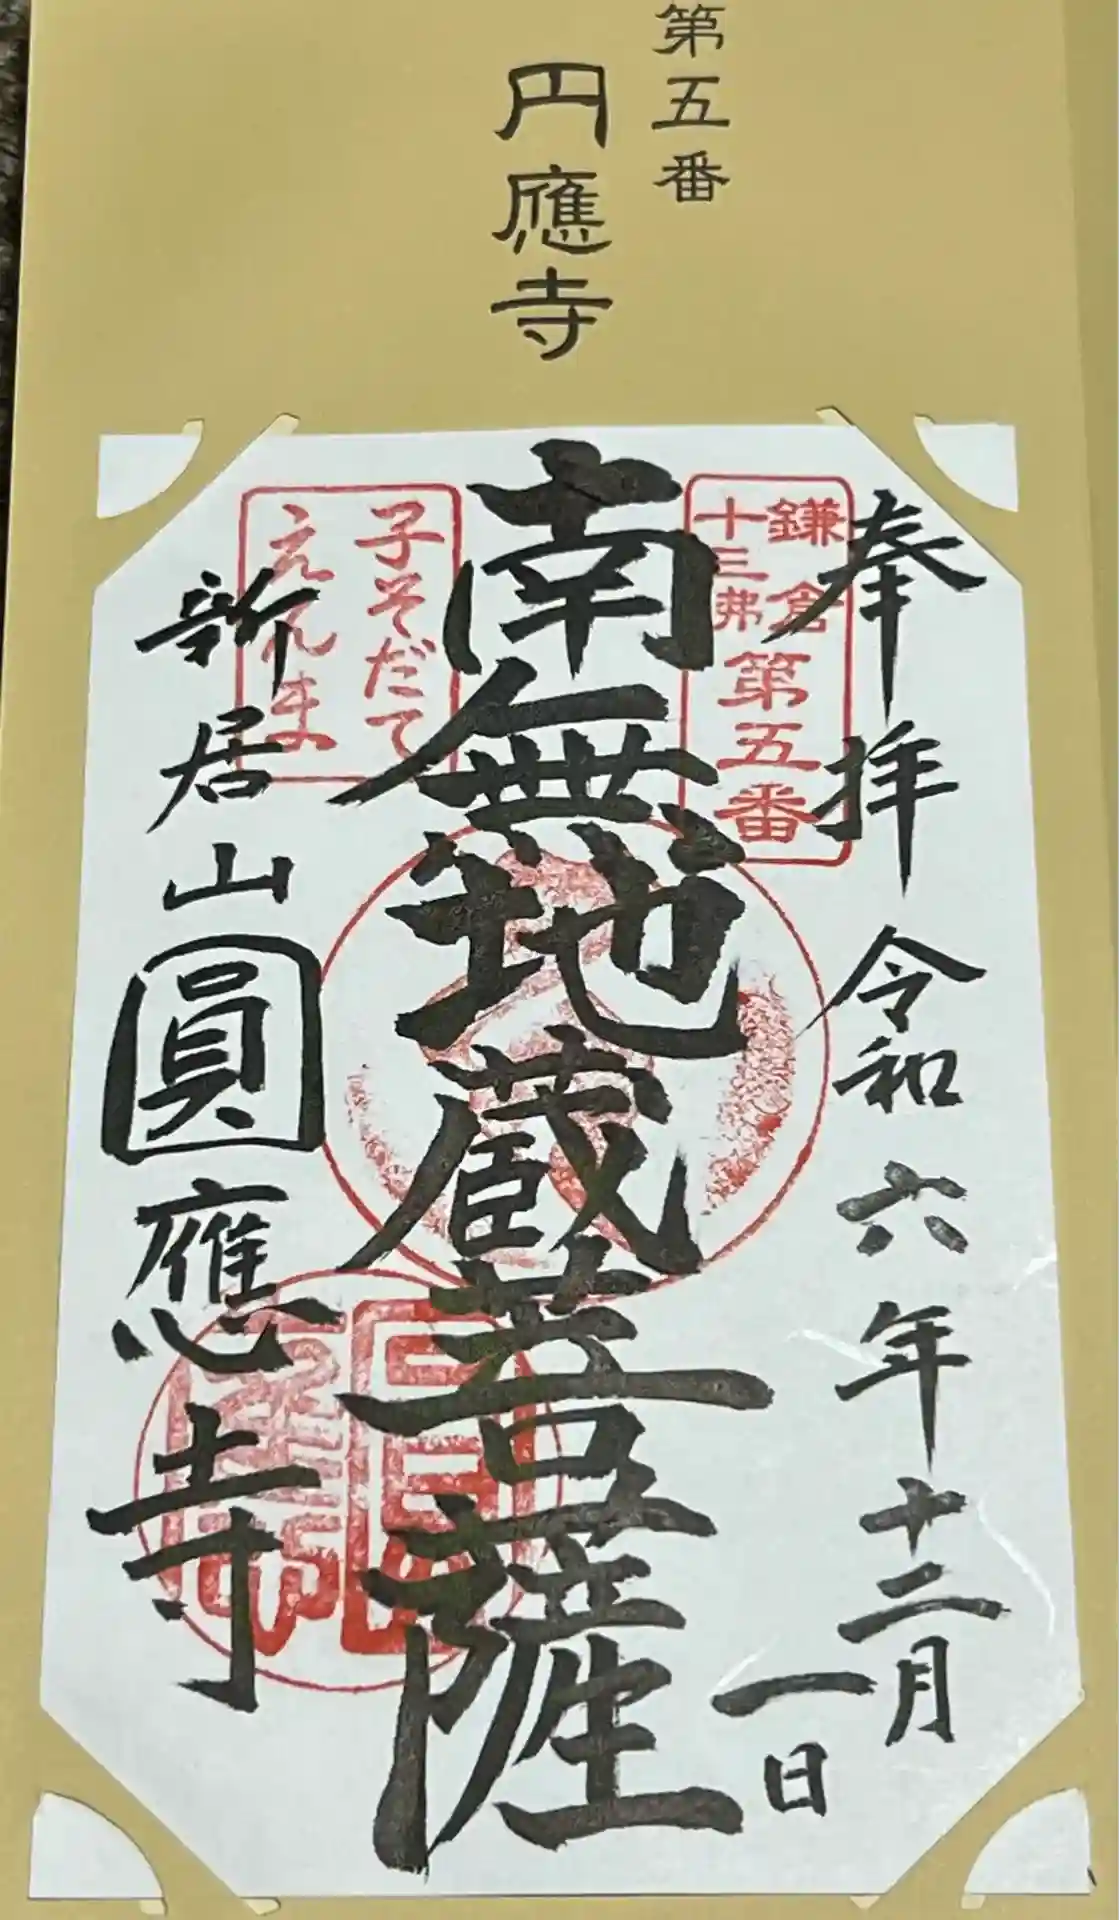 第五番
円應寺
奉拝 令和六年十二月
一日
鎌倉
十三弗
第五番
南無地蔵菩薩
子そだて
えんま
新居山圓應寺